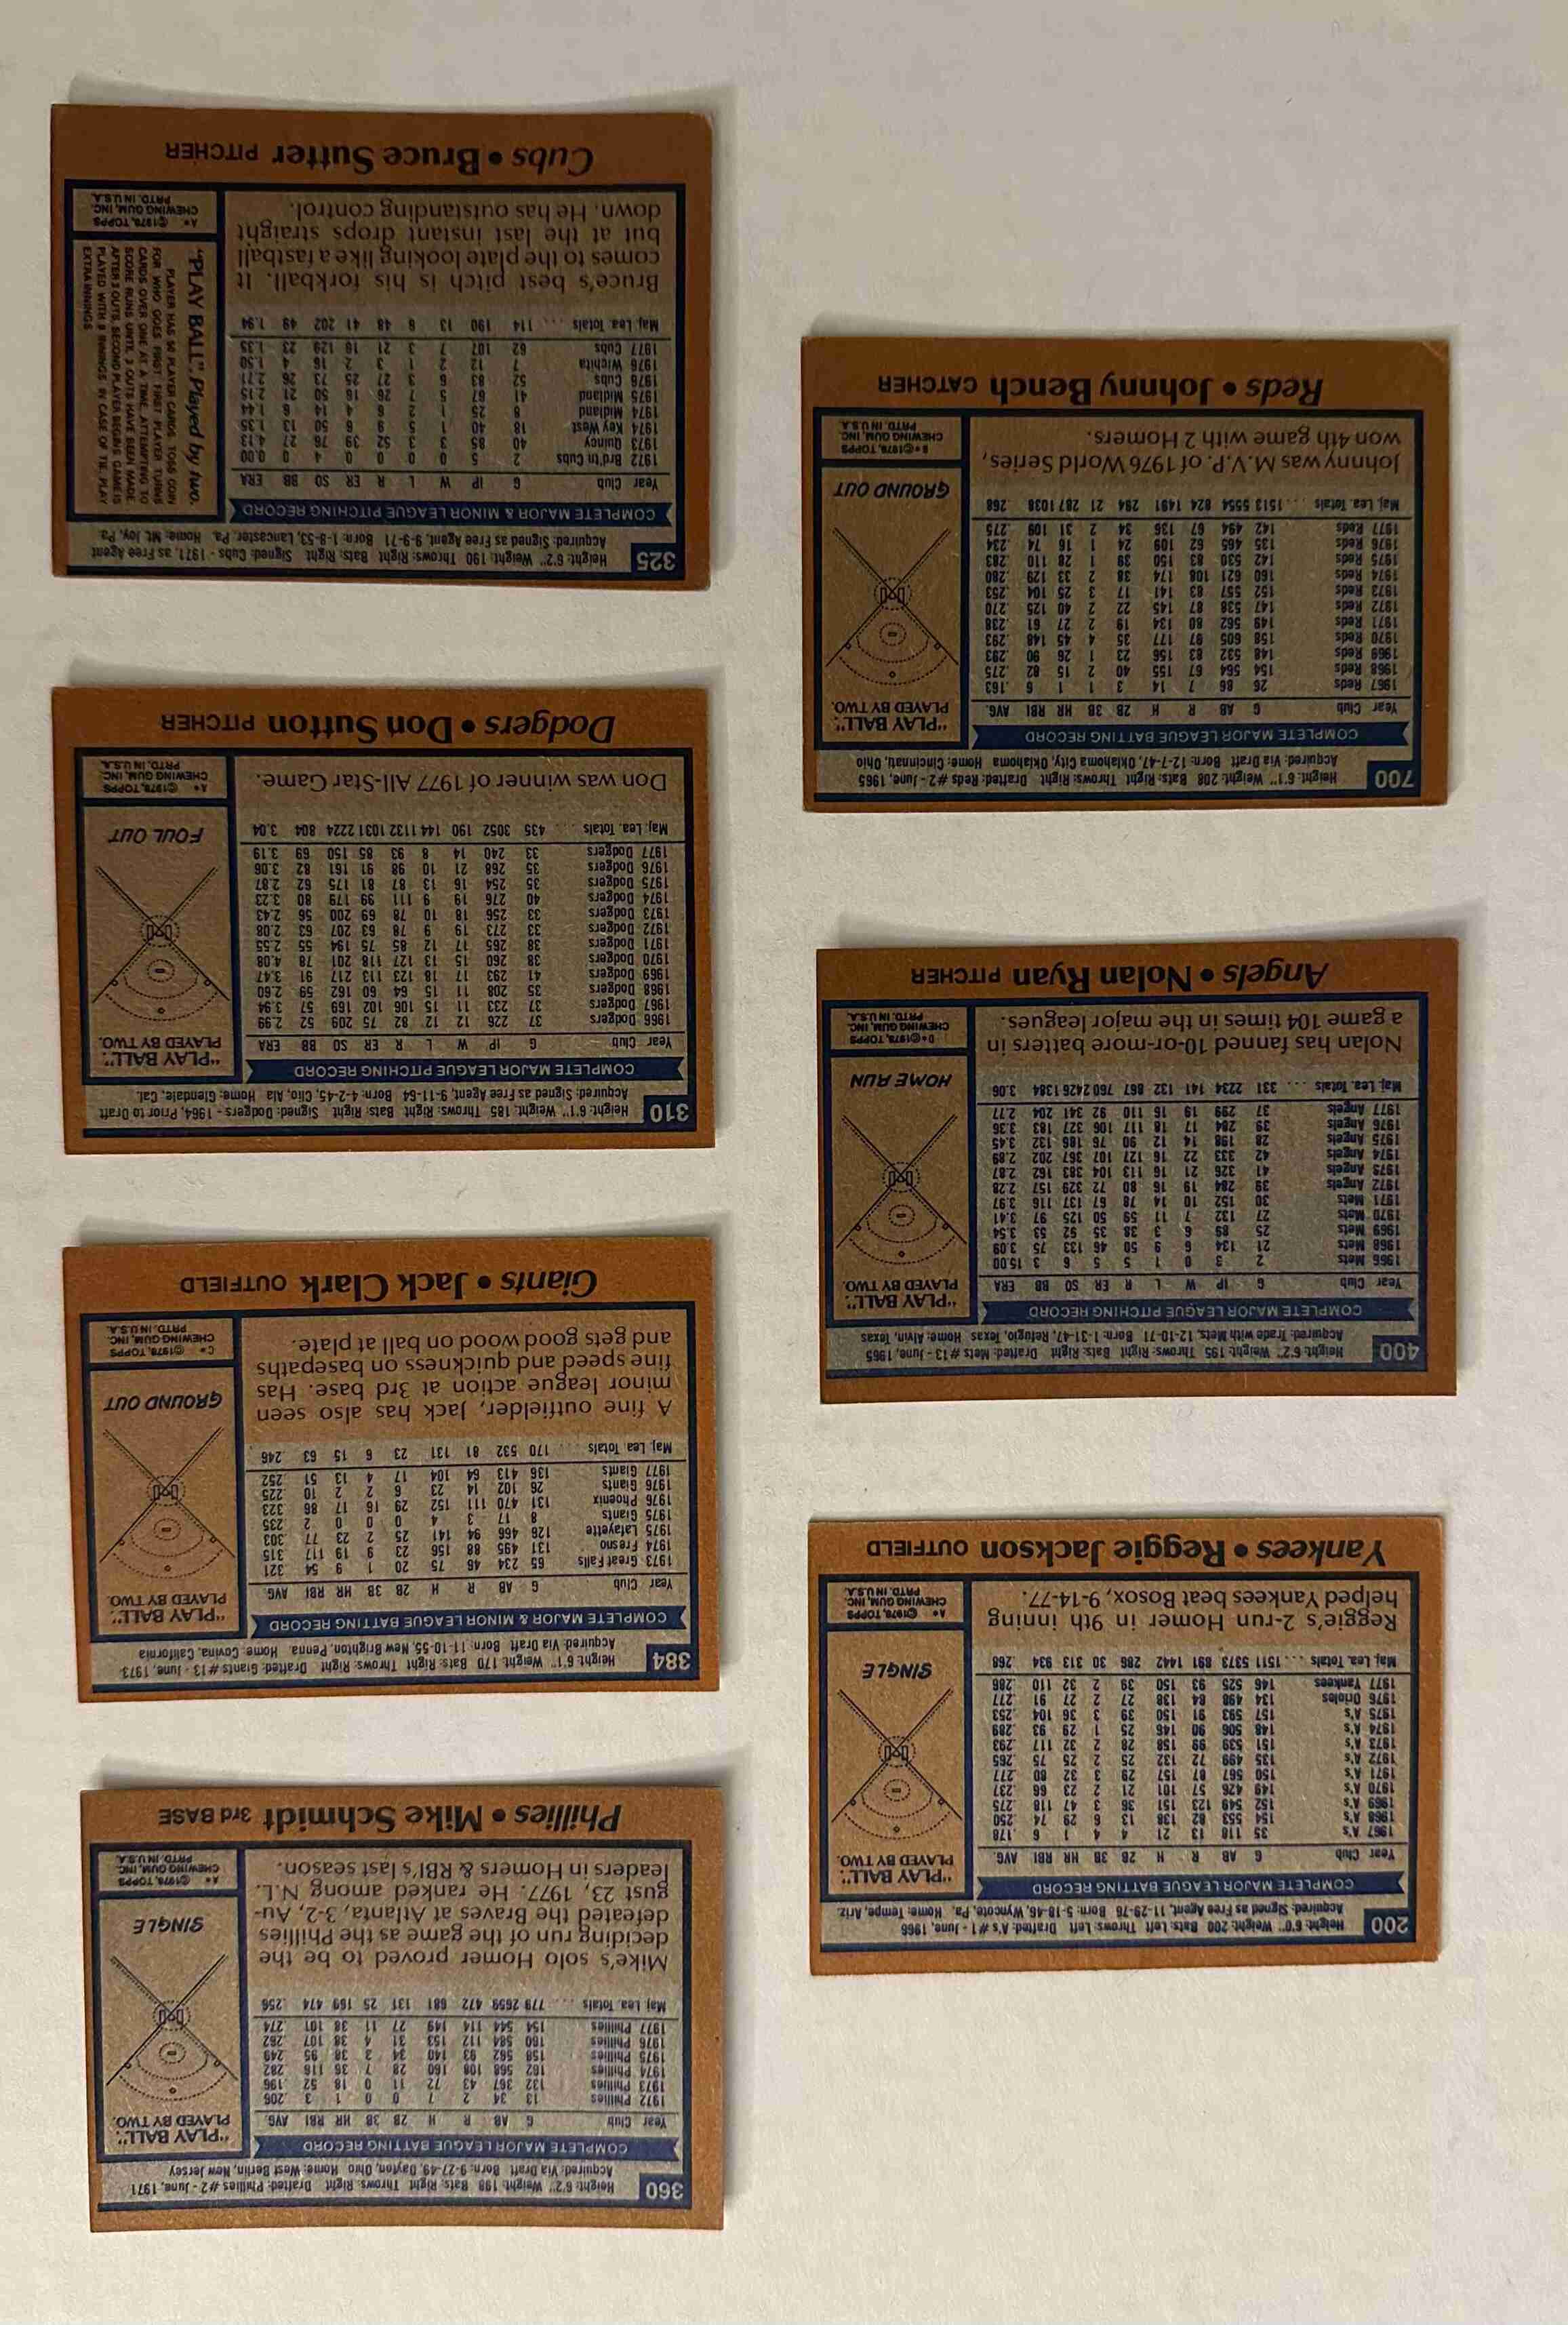 200
Height: 6'0" Weight: 200 Bats: Left Throws: Left Drafted: A's #1 - June, 1966
Acquired: Signed as Free Agent, 11-29-76 Born: 5-18-46, Wyncote, Pa. Home: Tempe, Ariz.
COMPLETE MAJOR LEAGUE BATTING RECORD
Year Club G AB R H 2B 3B HR RBI AVG.
1967 A's 35 118 13 21 4 4 1 6 .178
1968 A's 154 553 82 138 13 6 29 74 .250
1969 A's 152 549 123 151 36 3 47 118 .275
1970 A's 149 426 57 101 21 2 23 66 .237
1971 A's 150 567 87 157 29 3 32 80 .277
1972 A's 135 499 72 132 25 2 25 75 .265
1973 A's 151 539 99 158 28 2 32 117 .293
1974 A's 148 506 90 146 25 1 29 93 .289
1975 A's 157 593 91 150 39 3 36 104 .253
1976 Orioles 134 498 84 138 27 2 27 91 .277
1977 Yankees 146 525 93 150 39 2 32 110 .286
Maj. Lea. Totals .... 1511 5373 891 1442 286 30 313 934 .268
Reggie's 2-run Homer in 9th inning
helped Yankees beat Bosox, 9-14-77.
"PLAY BALL".
PLAYED BY TWO.
SINGLE
A* ©1978, TOPPS
CHEWING GUM, INC.
PRTD. IN U.S.A.
Yankees • Reggie Jackson OUTFIELD
400
Height: 6'2" Weight: 195 Throws: Right Bats: Right Drafted: Mets #13 - June, 1965
Acquired: Trade with Mets, 12-10-71 Born: 1-31-47, Refugio, Texas Home: Alvin, Texas
COMPLETE MAJOR LEAGUE PITCHING RECORD
Year Club G IP W L R ER SO BB ERA
1966 Mets 2 3 0 1 5 5 6 3 15.00
1968 Mets 21 134 6 9 50 46 133 75 3.09
1969 Mets 25 89 6 3 38 35 92 53 3.54
1970 Mets 27 132 7 11 59 50 125 97 3.41
1971 Mets 30 152 10 14 78 67 137 116 3.97
1972 Angels 39 284 19 16 80 72 329 157 2.28
1973 Angels 41 326 21 16 113 104 383 162 2.87
1974 Angels 42 333 22 16 127 107 367 202 2.89
1975 Angels 28 198 14 12 90 76 186 132 3.45
1976 Angels 39 284 17 18 117 106 327 183 3.36
1977 Angels 37 299 19 16 110 92 341 204 2.77
Maj. Lea. Totals .... 331 2234 141 132 867 760 2426 1384 3.06
Nolan has fanned 10-or-more batters in
a game 104 times in the major leagues.
"PLAY BALL".
PLAYED BY TWO.
HOME RUN
D* ©1978, TOPPS
CHEWING GUM, INC.
PRTD. IN U.S.A.
Angels • Nolan Ryan PITCHER
700
Height: 6'1" Weight: 208 Bats: Right Throws: Right Drafted: Reds #2 - June, 1965
Acquired: Via Draft Born: 12-7-47, Oklahoma City, Oklahoma Home: Cincinnati, Ohio
COMPLETE MAJOR LEAGUE BATTING RECORD
Year Club G AB R H 2B 3B HR RBI AVG.
1967 Reds 26 86 7 14 3 1 1 6 .163
1968 Reds 154 564 67 155 40 2 15 82 .275
1969 Reds 148 532 83 156 23 1 26 90 .293
1970 Reds 158 605 97 177 35 4 45 148 .293
1971 Reds 149 562 80 134 19 2 27 61 .238
1972 Reds 147 538 87 145 22 2 40 125 .270
1973 Reds 152 557 83 141 17 3 25 104 .253
1974 Reds 160 621 108 174 38 2 33 129 .280
1975 Reds 142 530 83 150 39 1 28 110 .283
1976 Reds 135 465 62 109 24 1 16 74 .234
1977 Reds 142 494 67 136 34 2 31 109 .275
Maj. Lea. Totals .... 1513 5554 824 1491 294 21 287 1038 .268
Johnny was M.V.P. of 1976 World Series,
won 4th game with 2 Homers.
"PLAY BALL".
PLAYED BY TWO.
GROUND OUT
B* ©1978, TOPPS
CHEWING GUM, INC.
PRTD. IN U.S.A.
Reds • Johnny Bench CATCHER
360
Height: 6'2" Weight: 198 Bats: Right Throws: Right Drafted: Phillies #2 - June, 1971
Acquired: Via Draft Born: 9-27-49, Dayton, Ohio Home: West Berlin, New Jersey
COMPLETE MAJOR LEAGUE BATTING RECORD
Year Club G AB R H 2B 3B HR RBI AVG.
1972 Phillies 13 34 2 7 0 0 1 3 .206
1973 Phillies 132 367 43 72 11 0 18 52 .196
1974 Phillies 162 568 108 160 28 7 36 116 .282
1975 Phillies 158 562 93 140 34 3 38 95 .249
1976 Phillies 160 584 112 153 31 4 38 107 .262
1977 Phillies 154 544 114 149 27 11 38 101 .274
Maj. Lea. Totals .... 779 2659 472 681 131 25 169 474 .256
Mike's solo Homer proved to be the
deciding run of the game as the Phillies
defeated the Braves at Atlanta, 3-2, Au-
gust 23, 1977. He ranked among N.L.
leaders in Homers & RBI's last season.
"PLAY BALL".
PLAYED BY TWO.
SINGLE
A* ©1978, TOPPS
CHEWING GUM, INC.
PRTD. IN U.S.A.
Phillies • Mike Schmidt 3rd BASE
384
Height: 6'1" Weight: 170 Bats: Right Throws: Right Drafted: Giants #13 - June, 1973
Acquired: Via Draft Born: 11-10-55, New Brighton, Penna Home: Covina, California
COMPLETE MAJOR & MINOR LEAGUE BATTING RECORD
Year Club G AB R H 2B 3B HR RBI AVG.
1973 Great Falls 65 234 46 75 20 1 9 54 .321
1974 Fresno 131 495 88 156 23 9 19 117 .315
1975 Lafayette 126 466 94 141 25 2 23 77 .303
1975 Giants 8 17 3 4 0 0 0 2 .235
1976 Phoenix 131 470 111 152 29 16 17 86 .323
1976 Giants 26 102 14 23 6 2 2 10 .225
1977 Giants 136 413 64 104 17 4 13 51 .252
Maj. Lea. Totals .... 170 532 81 131 23 6 15 63 .246
A fine outfielder, Jack has also seen
minor league action at 3rd base. Has
fine speed and quickness on basepaths
and gets good wood on ball at plate.
"PLAY BALL".
PLAYED BY TWO.
GROUND OUT
C* ©1978, TOPPS
CHEWING GUM, INC.
PRTD. IN U.S.A.
Giants • Jack Clark OUTFIELD
310
Height: 6'1" Weight: 185 Throws: Right Bats: Right Signed: Dodgers - 1964, Prior to Draft
Acquired: Signed as Free Agent, 9-11-64 Born: 4-2-45, Clio, Ala Home: Glendale, Cal.
COMPLETE MAJOR LEAGUE PITCHING RECORD
Year Club G IP W L R ER SO BB ERA
1966 Dodgers 37 226 12 12 82 75 209 52 2.99
1967 Dodgers 37 233 11 15 106 102 169 57 3.94
1968 Dodgers 35 208 11 15 64 60 162 59 2.60
1969 Dodgers 41 293 17 18 123 113 217 91 3.47
1970 Dodgers 38 260 15 13 127 118 201 78 4.08
1971 Dodgers 38 265 17 12 85 75 194 55 2.55
1972 Dodgers 33 273 19 9 78 63 207 63 2.08
1973 Dodgers 33 256 18 10 78 69 200 56 2.43
1974 Dodgers 40 276 19 9 111 99 179 80 3.23
1975 Dodgers 35 254 16 13 87 81 175 62 2.87
1976 Dodgers 35 268 21 10 98 91 161 82 3.06
1977 Dodgers 33 240 14 8 93 85 150 69 3.19
Maj. Lea. Totals .... 435 3052 190 144 1132 1031 2224 804 3.04
Don was winner of 1977 All-Star Game.
"PLAY BALL".
PLAYED BY TWO.
FOUL OUT
A* ©1978, TOPPS
CHEWING GUM, INC.
PRTD. IN U.S.A.
Dodgers • Don Sutton PITCHER
325
Height: 6'2" Weight: 190 Throws: Right Bats: Right Signed: Cubs - 1971, as Free Agent
Acquired: Signed as Free Agent, 9-9-71 Born: 1-8-53, Lancaster, Pa Home: Mt. Joy, Pa
COMPLETE MAJOR & MINOR LEAGUE PITCHING RECORD
Year Club G IP W L R ER SO BB ERA
1972 Brd'tn Cubs 2 5 0 0 0 0 4 0 0.00
1973 Quincy 40 85 3 3 52 39 76 27 4.13
1974 Key West 18 40 1 5 9 6 50 13 1.35
1974 Midland 8 25 1 2 6 4 14 6 1.44
1975 Midland 41 67 5 7 26 16 50 21 2.15
1976 Cubs 52 83 6 3 27 25 73 26 2.71
1976 Wichita 7 12 2 1 3 2 16 4 1.50
1977 Cubs 62 107 7 3 21 16 129 23 1.35
Maj. Lea. Totals .... 114 190 13 6 48 41 202 49 1.94
Bruce's best pitch is his forkball. It
comes to the plate looking like a fastball
but at the last instant drops straight
down. He has outstanding control.
"PLAY BALL". Played by two.
PLAYER HAS 50 PLAYER CARDS. TOSS COIN
FOR WHO GOES FIRST. FIRST PLAYER TURNS
CARDS OVER ONE AT A TIME, ATTEMPTING TO
SCORE RUNS UNTIL 3 OUTS HAVE BEEN MADE.
AFTER 3 OUTS, SECOND PLAYER BEGINS. GAME IS
PLAYED WITH 9 INNINGS. IN CASE OF TIE, PLAY
EXTRA INNINGS
A* ©1978, TOPPS
CHEWING GUM, INC.
PRTD. IN U.S.A.
Cubs • Bruce Sutter PITCHER